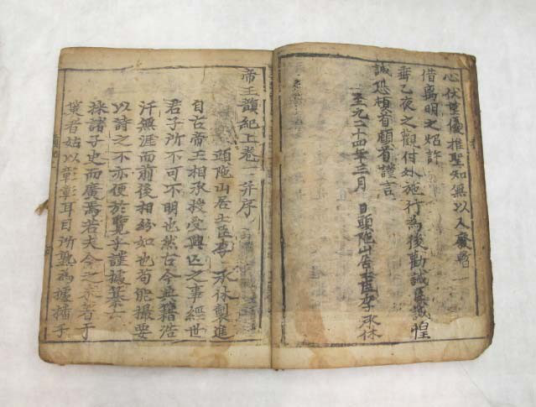 心伏望優推聖知無以人廢略
借离明之炤許
齊乙夜之觀付外施行爲後勸誡臣誠惶
誠恐頓首頓首謹言
至元二十四年三月 日頭陁山居士臣李承休
帝王韻紀上卷 一并序
頭陁山居士臣李 承休製進
自古帝王相承授受興亡之事經世
君子所不可不明也然古今典籍浩
汗無涯而前後相紛如也苟能撮要
以詩之不亦便於覽乎謹據
採諸子史而廣焉若夫今之未著于
策者姑以彰彰耳目所熟爲據播于